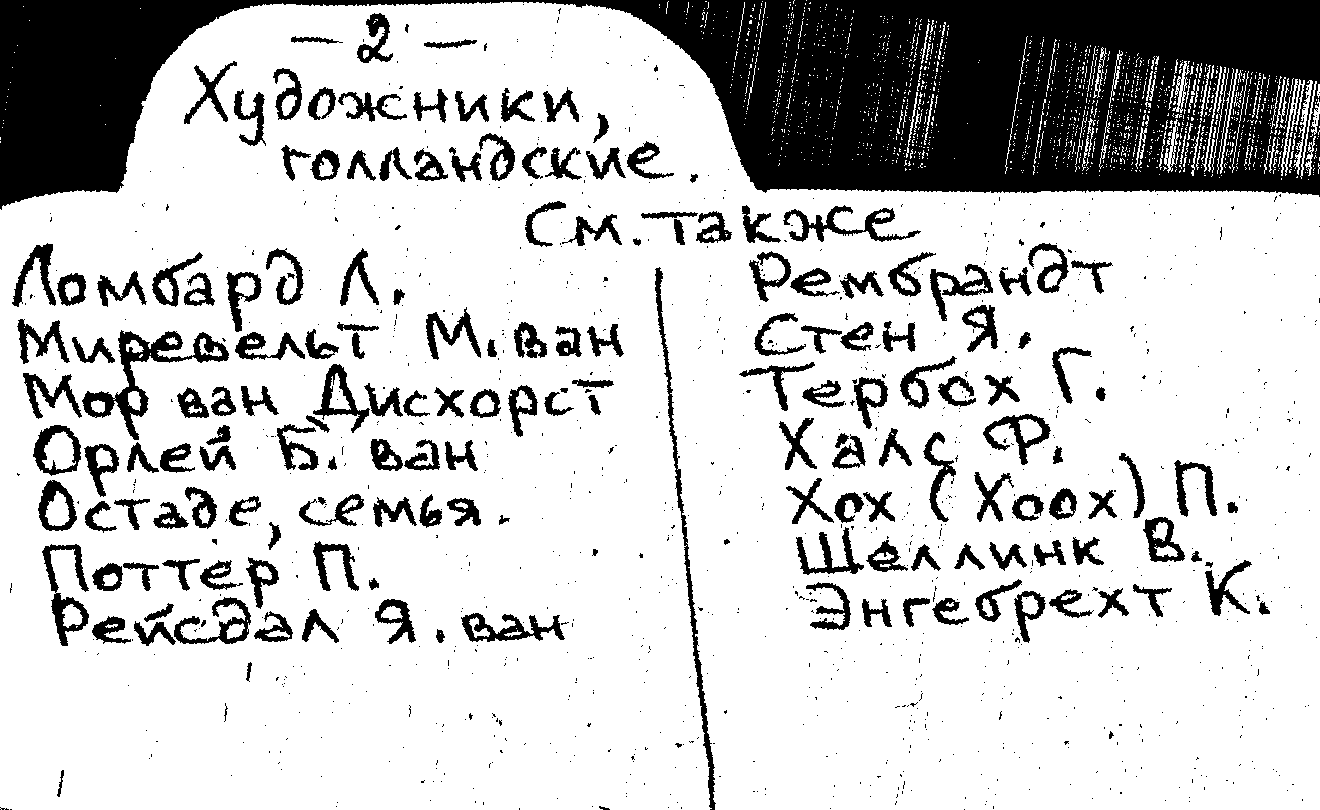 — 2 —
Художники,
голландские.
См. также
Ломбард Л.
Миревельт М. ван
Мор ван Дисхорст
Орлей Б. ван
Остаде, семья.
Поттер П.
Рейсдал Я. ван
Рембрандт
Стен Я.
Тербох Г.
Халс Ф.
Хох (Хоох) П.
Шеллинк В.
Энгебрехт К.